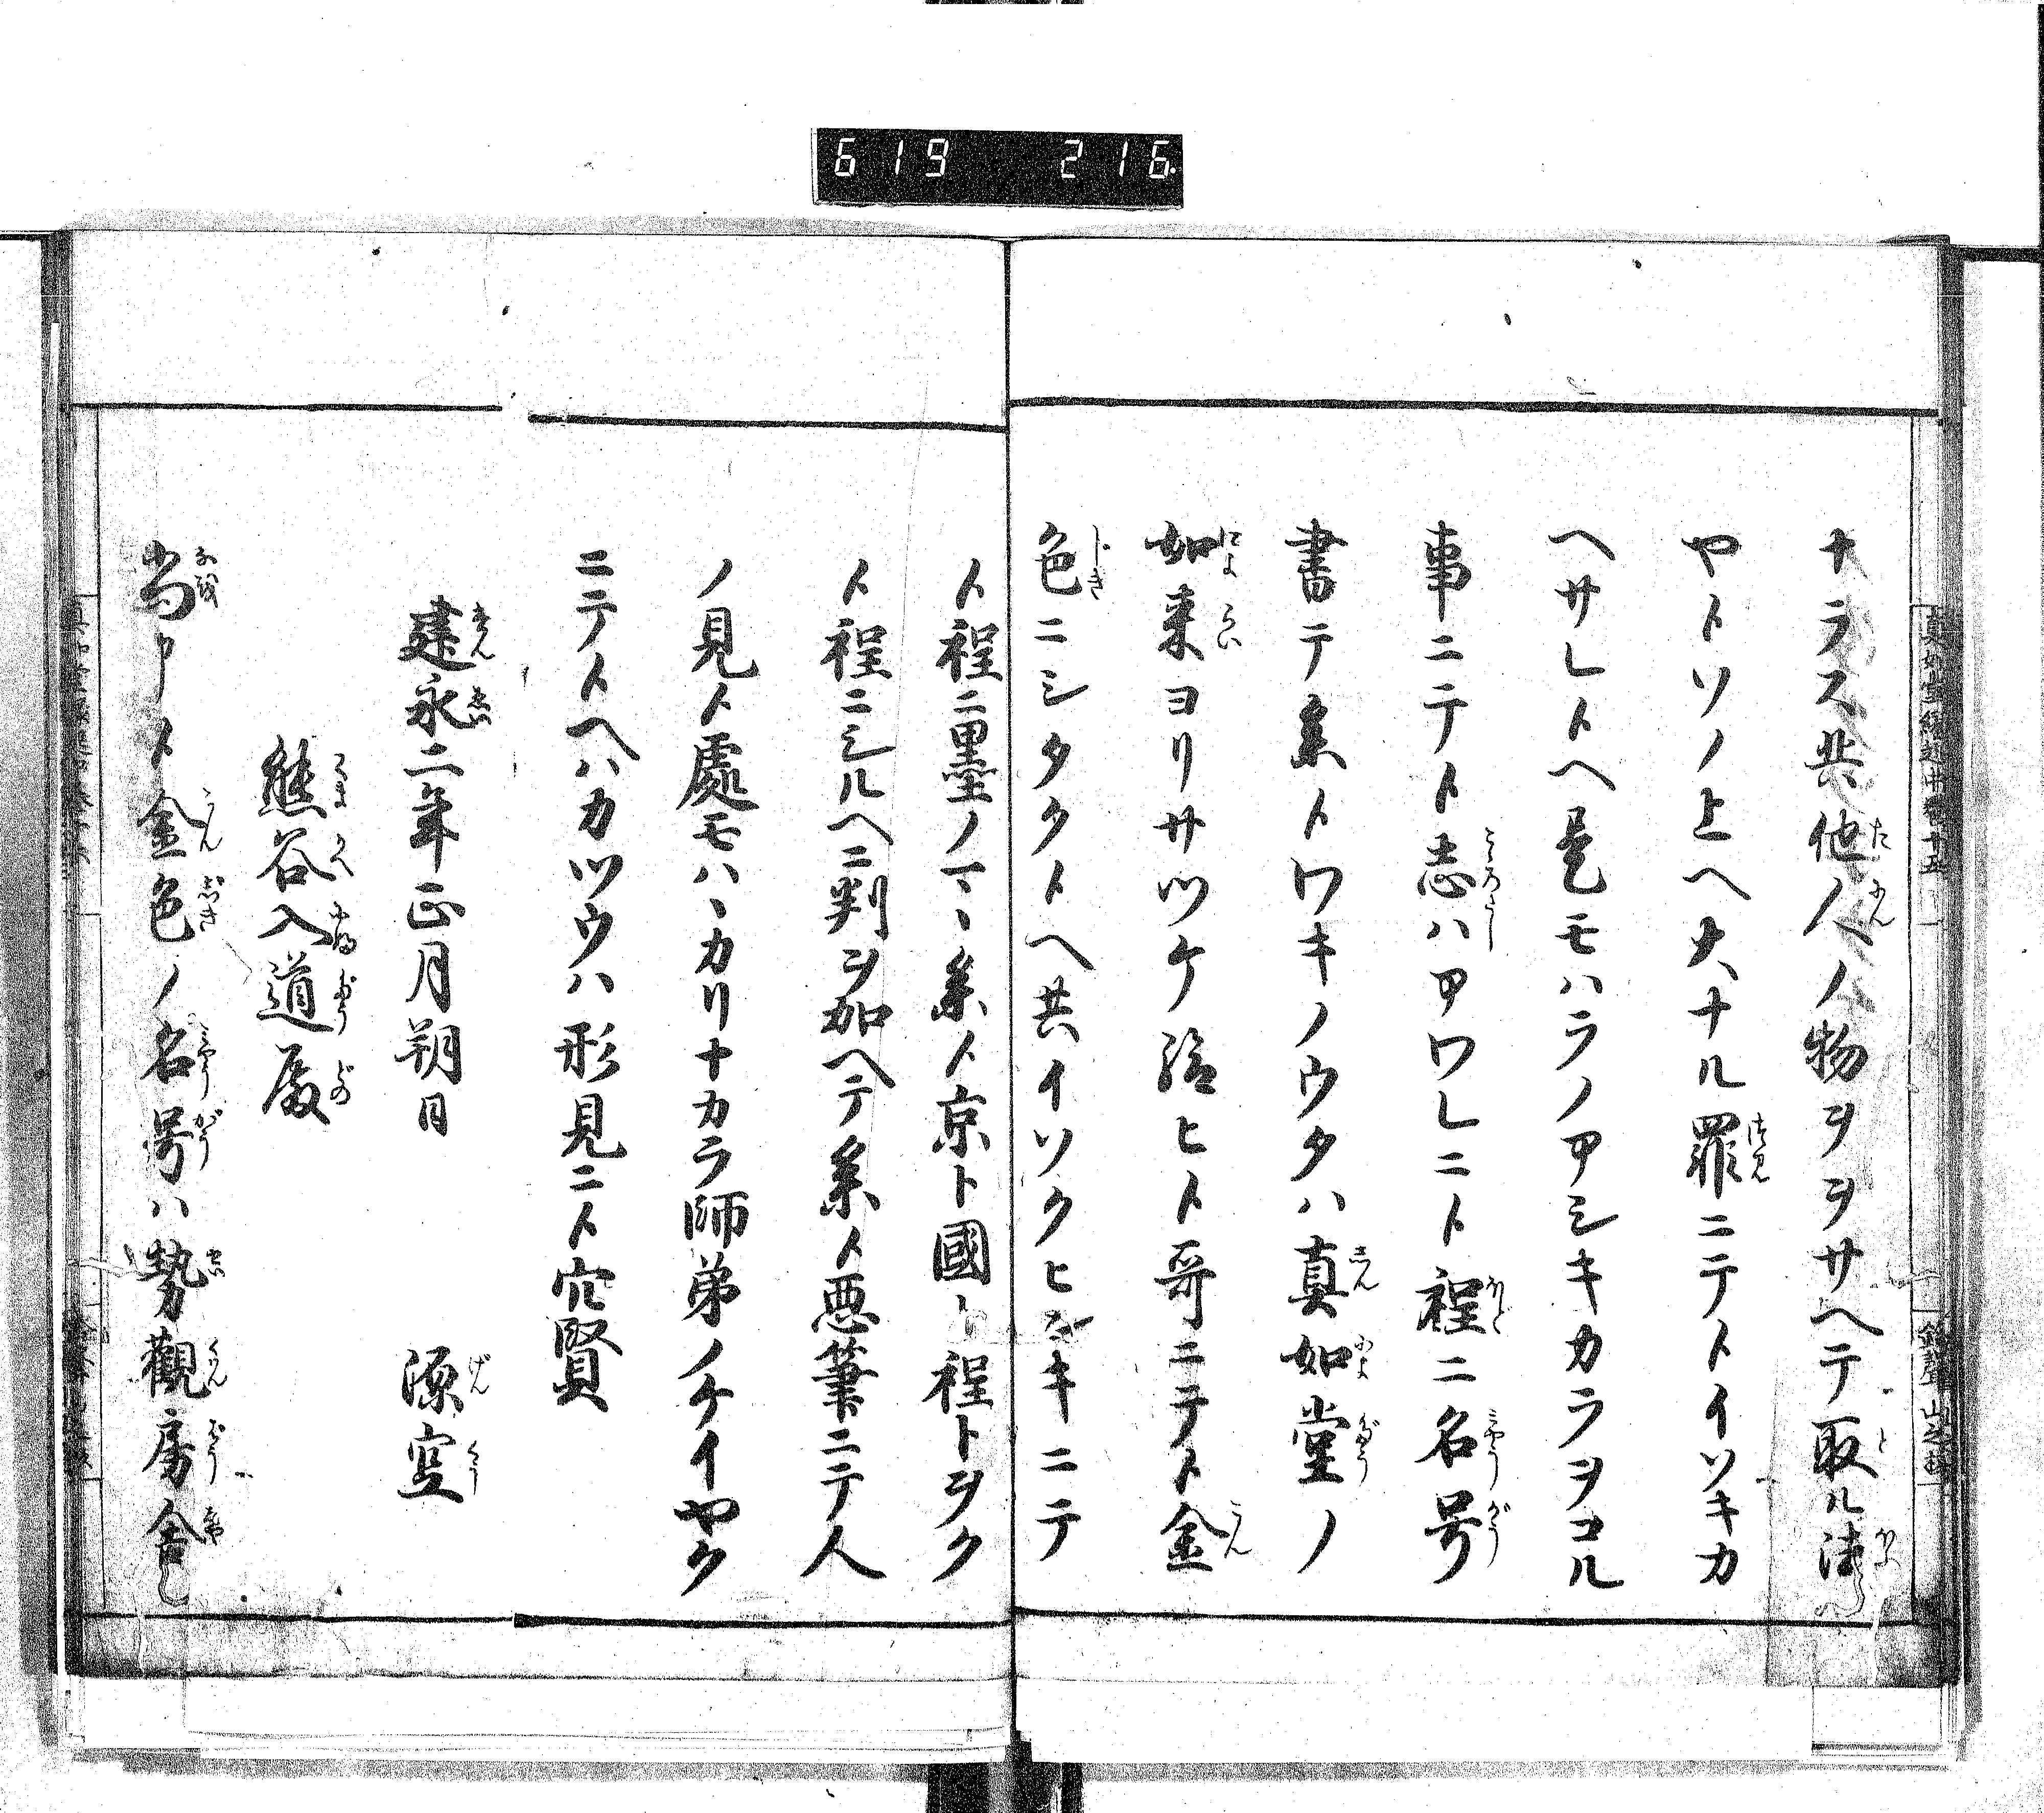 619 216
ナラス共他人ノ物ヲヲサヘテ取ル法
ヤトソノ上ヘ大ナル罪ニテトイソキカ
ヘサレトヘ是モハラノアシキカラヲコル
事ニテト志ハアワレニト程ニ名号
書テ糸トワキノウタハ真如堂ノ
如来ヨリサツケ給ヒト哥ニテト金
色ニシタクトヘ共イソクヒキニテ
ト程ニ墨ノマヽ糸ト京ト國ト程トヲク
ト程ニシルヘニ判ヲ加ヘテ糸ト悪筆ニテ人
ノ見ト處モハヽカリナカラ師弟ノケイヤク
ニテトヘハカツウハ形見ニト穴賢
建永二年正月朔日 源空
熊谷入道殿
尚ト金色ノ名号ハ勢觀房舎